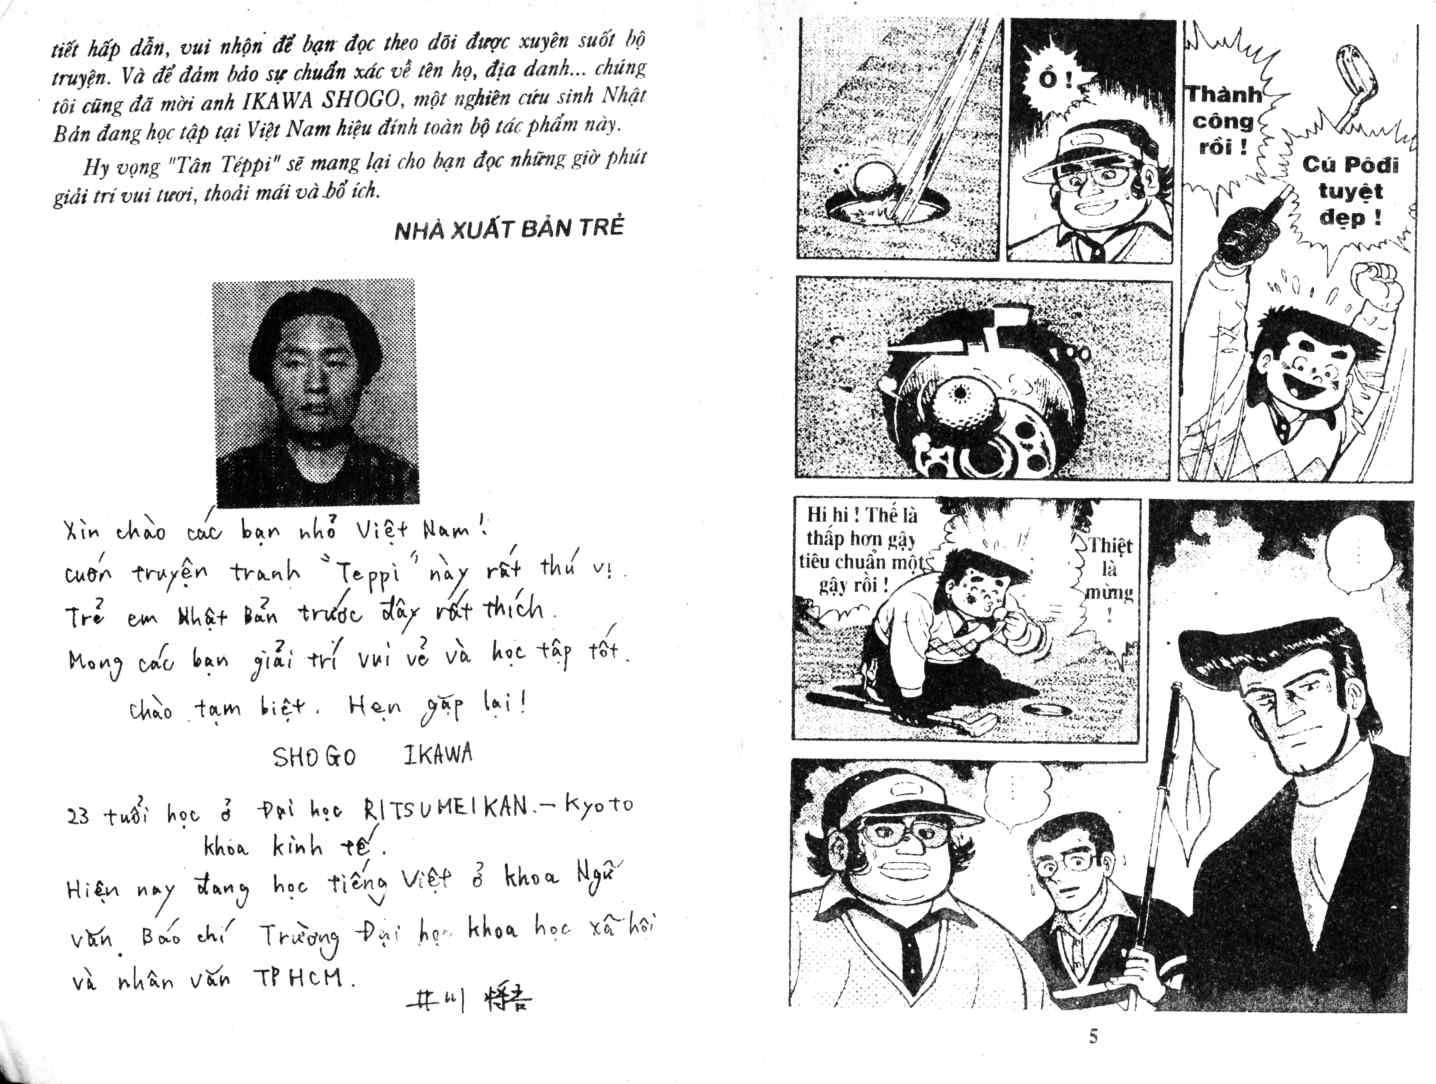 tiết hấp dẫn, vui nhộn để bạn đọc theo dõi được xuyên suốt bộ
truyện. Và để đảm bảo sự chuẩn xác về tên họ, địa danh... chúng
tôi cũng đã mời anh IKAWA SHOGO, một nghiên cứu sinh Nhật
Bản đang học tập tại Việt Nam hiệu đính toàn bộ tác phẩm này.
Hy vọng "Tân Téppi" sẽ mang lại cho bạn đọc những giờ phút
giải trí vui tươi, thoải mái và bổ ích.
NHÀ XUẤT BẢN TRẺ
Xin chào các bạn nhỏ Việt Nam!
cuốn truyện tranh "Teppi" này rất thú vị.
Trẻ em Nhật Bản trước đây rất thích.
Mong các bạn giải trí vui vẻ và học tập tốt.
chào tạm biệt. Hẹn gặp lại!
SHOGO IKAWA
23 tuổi học ở Đại học RITSUMEIKAN. – Kyoto
khoa kinh tế.
Hiện nay đang học tiếng Việt ở khoa Ngữ
văn. Báo chí Trường Đại học khoa học xã hội
và nhân văn TPHCM.
井川 将吾
Ồ !
Thành
công
rồi !
Cú Pôđi
tuyệt
đẹp !
Hi hi ! Thế là
thấp hơn gậy
tiêu chuẩn một
gậy rồi !
Thiệt
là
mừng
!
5